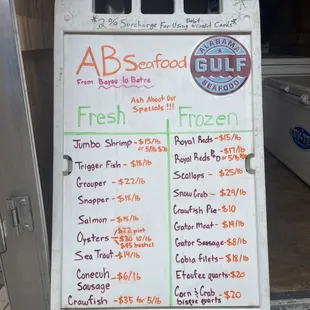 *2% Surcharge For Using Debit Credit Cards*
ABSeafood
From Bayou la Batre
ALABAMA
GULF
SEAFOOD
Ask About Our
Specials !!!
Fresh
Jumbo Shrimp - $15/lb
Trigger Fish - $18/lb
Grouper - $22/lb
Snapper - $18/lb
Salmon - $15/lb
Oysters - $20 10/lb
$45 bushel
Sea Trout - $14/lb
Conecuh - $6/lb
Sausage
Crawfish - $35 for 5/lb
Frozen
Royal Reds - $15/lb
Royal Reds P&D - $17/lb
Scallops - $25/lb
Snow Crab - $24/lb
Crawfish Pie - $10
Gator Meat - $19/lb
Gator Sausage - $8/lb
Cobia Filets - $18/lb
Etoufee quarts - $20
Corn & Crab - $20
bisque quarts